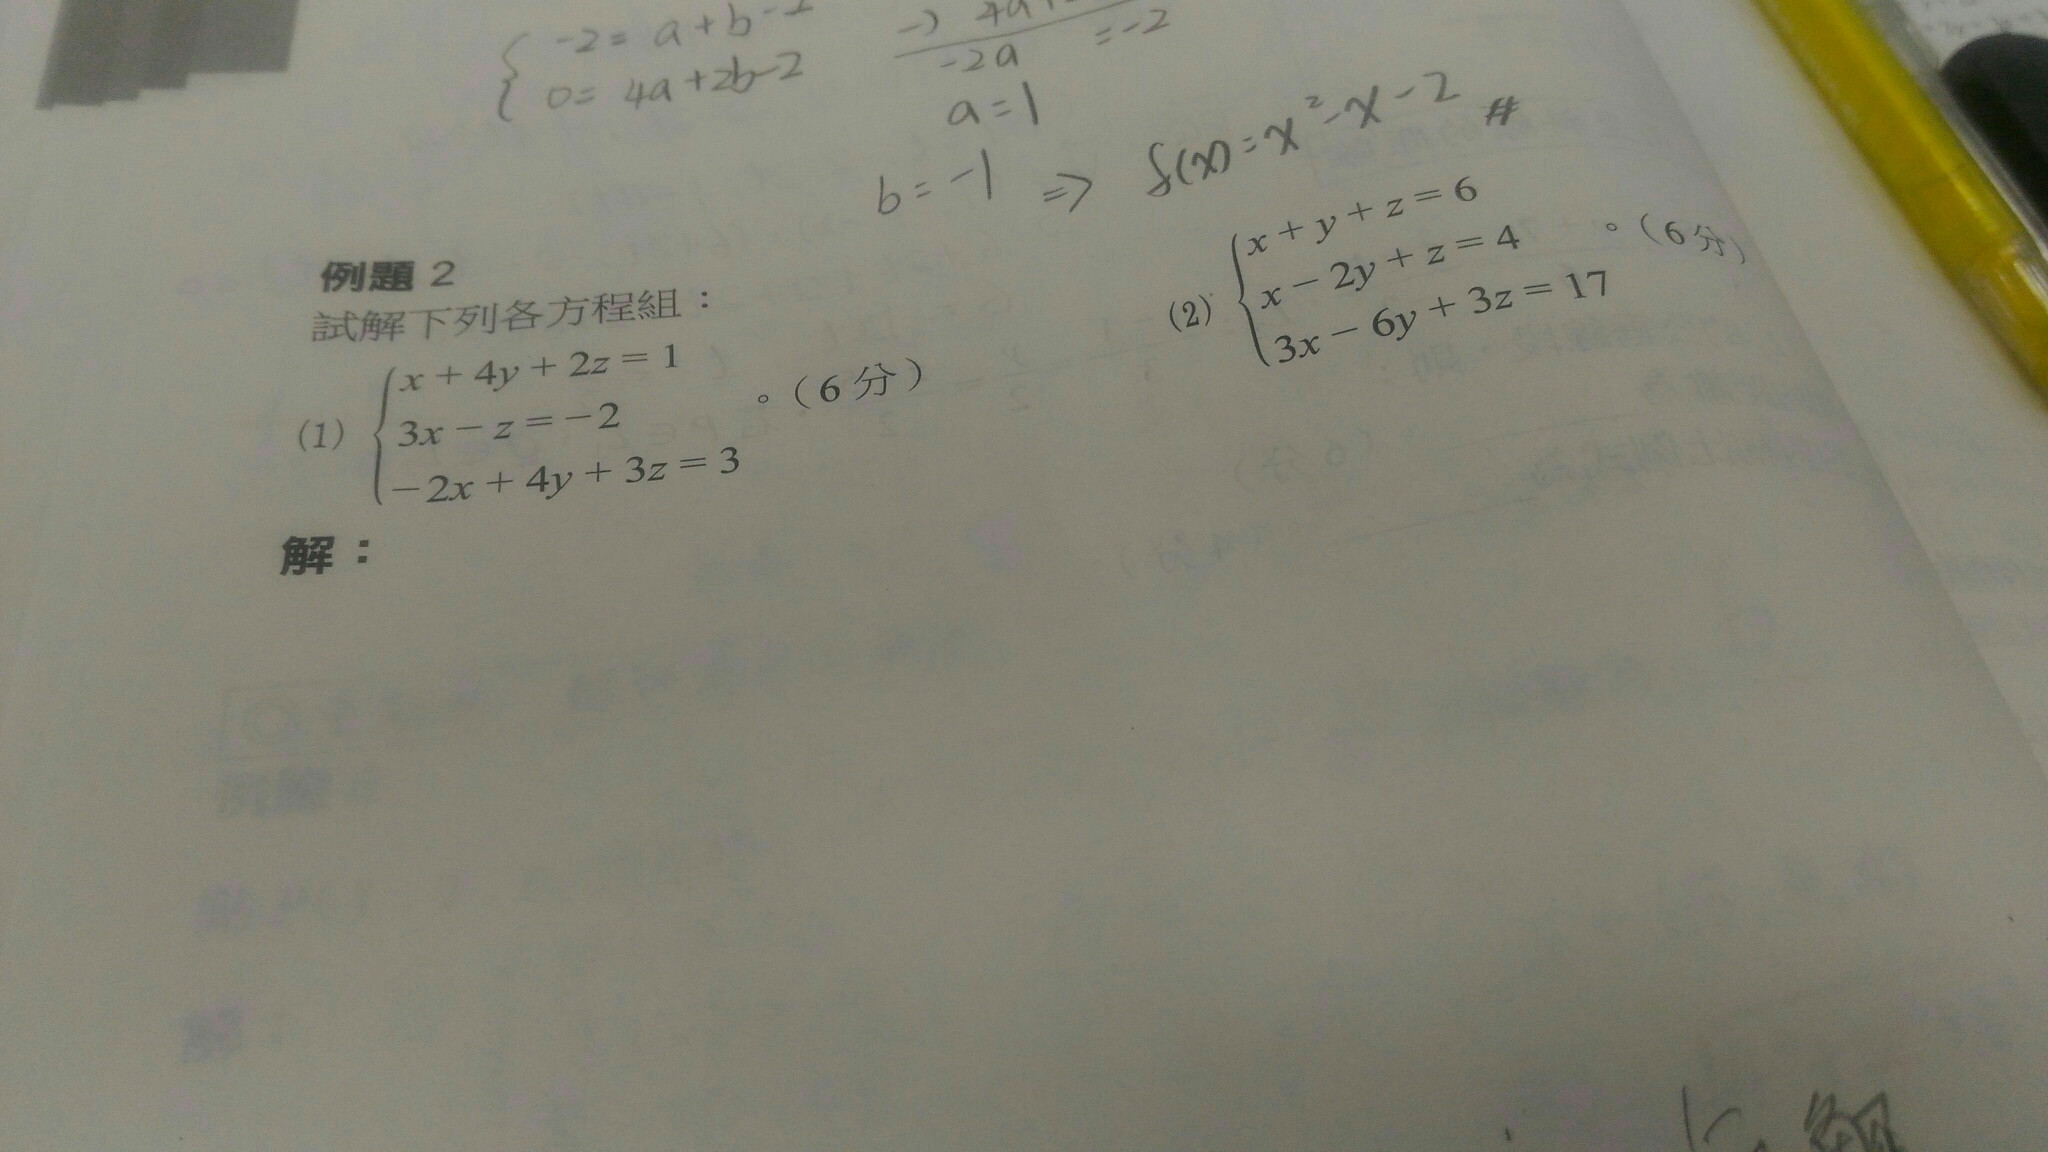 -2 = a + b - 2
0 = 4a + 2b - 2
-2a = -2
a = 1
b = -1 ⇒ f(x) = x² - x - 2 #
例題 2
試解下列各方程組：
(1) { x + 4y + 2z = 1
3x - z = -2 。(6 分)
-2x + 4y + 3z = 3
(2) { x + y + z = 6
x - 2y + z = 4 。(6 分)
3x - 6y + 3z = 17
解：